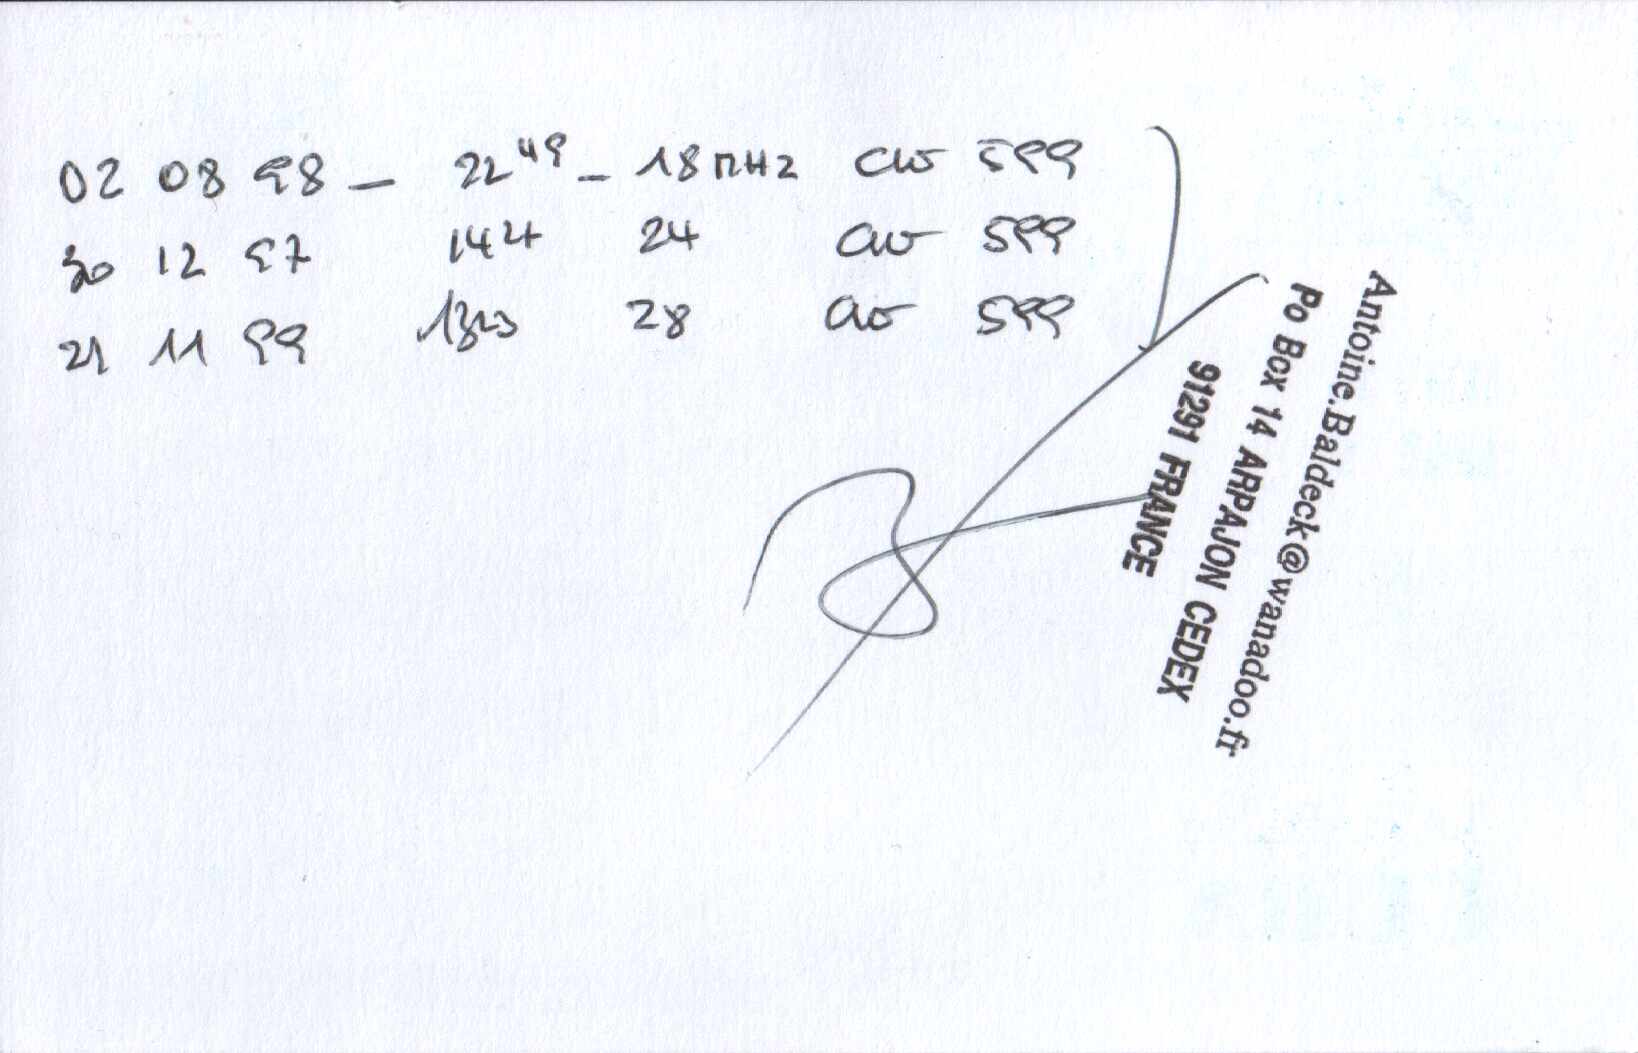 02 08 98 – 22 49 – 18 MHz CW 599
30 12 97 24 CW 599
21 11 99 28 CW 599
Antoine.Baldeck@wanadoo.fr
Po Box 14 ARPAJON CEDEX
91291 FRANCE